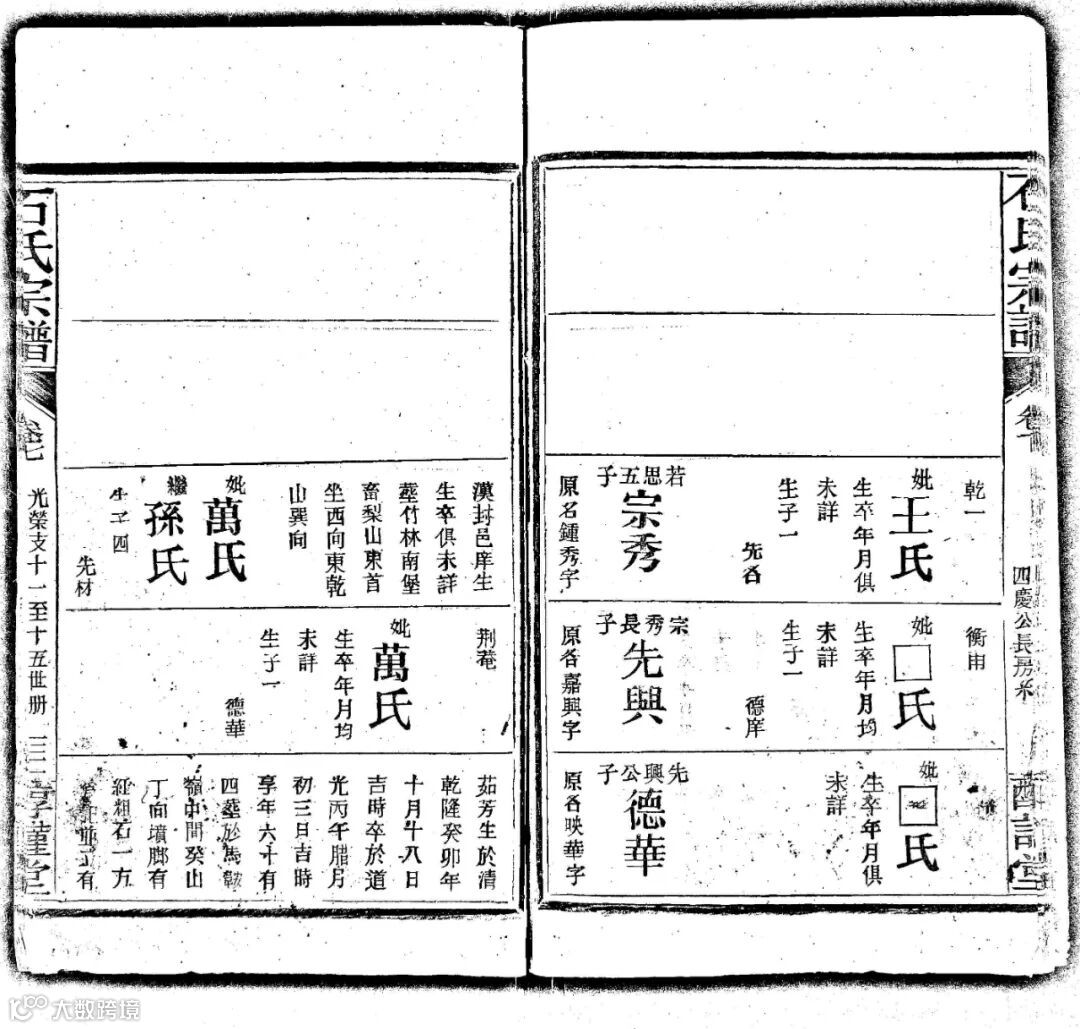 石氏宗譜
四慶公長房系
乾一
妣王氏
生卒年月俱
未詳
生子一
若思五子
宗秀
原名鍾秀字
衡雨
妣□氏
生卒年月均
未詳
生子一
德庠
宗秀長子
先興
原名嘉興字
妣□氏
生卒年月俱
未詳
先興公子
德華
原名映華字
漢封邑庠生
生卒俱未詳
塟竹林南堡
畬梨山東首
坐西向東乾
山巽向
妣萬氏
繼孫氏
生子四
先材
荆菴
妣萬氏
生卒年月均
未詳
生子一
德華
茹芳生於清
乾隆癸卯年
十月十八日
吉時卒於道
光丙午腊月
初三日吉時
享年六十有
四塟於馬鞍
嶺中間癸山
丁向墳腳有
紅粗石一方
石氏宗譜
卷七
光榮支十一至十五世册
大数跨境